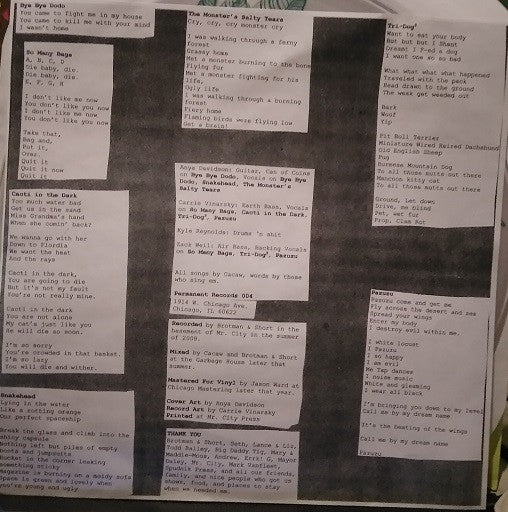 Bye Bye Dodo
You came to fight me in my house
You came to kill me with your mind
I wasn't home
So Many Bags
A, B, C, D
Die baby, die.
Die baby, die.
E, F, G, H
I don't like me now
You don't like you now
I don't like me now
You don't like you now
Take that,
Bag and,
Put it,
Over.
Quit it
Quit it now
Quit it
Caoti in the Dark
You much water bad
Get us in the sand
Miss Grandma's hand
When she comin' back?
We wanna go with her
Down to Flordia
We want the heat
And the rays
Caoti in the dark,
You are going to die
But it's not my fault
You're not really mine.
Caoti in the dark
You are not alone
My cat's just like you
He will die so soon.
I'm so sorry
You're crowded in that basket.
I'm so lazy
You will die and wither.
Snakehead
Lying in the water
Like a rotting orange
The perfect spaceship
Break the glass and climb into the
shiny capsule
Nothing left but piles of empty
boots and jumpsuits
Bucket in the corner leaking
something sticky
Magazine is burning on a moldy sofa
Space is green and lovely when
you're young and ugly
The Monster's Salty Tears
Cry, cry, cry monster cry
I was walking through a ferny
forest
Grassy home
Met a monster burning to the bone
Flying fur
Met a monster fighting for his
life,
Ugly life
I was walking through a burning
forest
Fiery home
Flaming birds were flying low
Get a brain!
Anya Davidson: Guitar, Cat of Coins
on Bye Bye Dodo, Vocals on Bye Bye
Dodo, Snakehead, The Monster's
Salty Tears
Carrie Vinarsky: Earth Bass, Vocals
on So Many Bags, Caoti in the Dark,
Tri-Dog², Pazuzu
Kyle Reynolds: Drums 'n shit
Zack Weil: Air Bass, Backing Vocals
on So Many Bags, Tri-Dog², Pazuzu
All songs by Cacaw, words by those
who sing em.
Permanent Records 004
1914 W. Chicago Ave.
Chicago, IL 60622
Recorded by Brotman & Short in the
basement of Mr. City in the summer
of 2009.
Mixed by Cacaw and Brotman & Short
at the Garbage House later that
summer.
Mastered For Vinyl by Jason Ward at
Chicago Mastering later that year.
Cover Art by Anya Davidson
Record Art by Carrie Vinarsky
Printed at Mr. City Press
THANK YOU
Brotman & Short, Seth, Lance & Liz,
Todd Bailey, Big Daddy Tig, Mary &
Maddie-Moos, Andrew, Errk! G. Mayor
Daley, Mr. City, Mark
Spudnik Press, and all our friends,
family, and nice people who got us
shows, food, and places to stay
when we needed em.
Tri-Dog²
Want to eat your body
But but but I Shant
Dreamt I F-ed a dog
I want one so so bad
What what what what happened
Traveled with the pack
Head drawn to the ground
The weak get weeded out
Bark
Woof
Yip
Pit Bull Terrier
Miniature Wired Haired Dachshund
Old English Sheep
Pug
Burmese Mountain Dog
To all those mutts out there
Mancoon kitty cat
To all those mutts out there
Ground, Let down
Drive, me blind
Pet, wet fur
Prop, Clam Rot
Pazuzu
Pazuzu come and get me
Fly across the desert and sea
Spread your wings
Enter my body
I destroy evil within me.
I white locust
I Pazuzu
I so happy
I am evil
Me Tap dances
I noise music
White and gleaming
I wear all black
I'm bringing you down to my level
Call me by my dream name
It's the beating of the wings
Call me by my dream name
Pazuzu